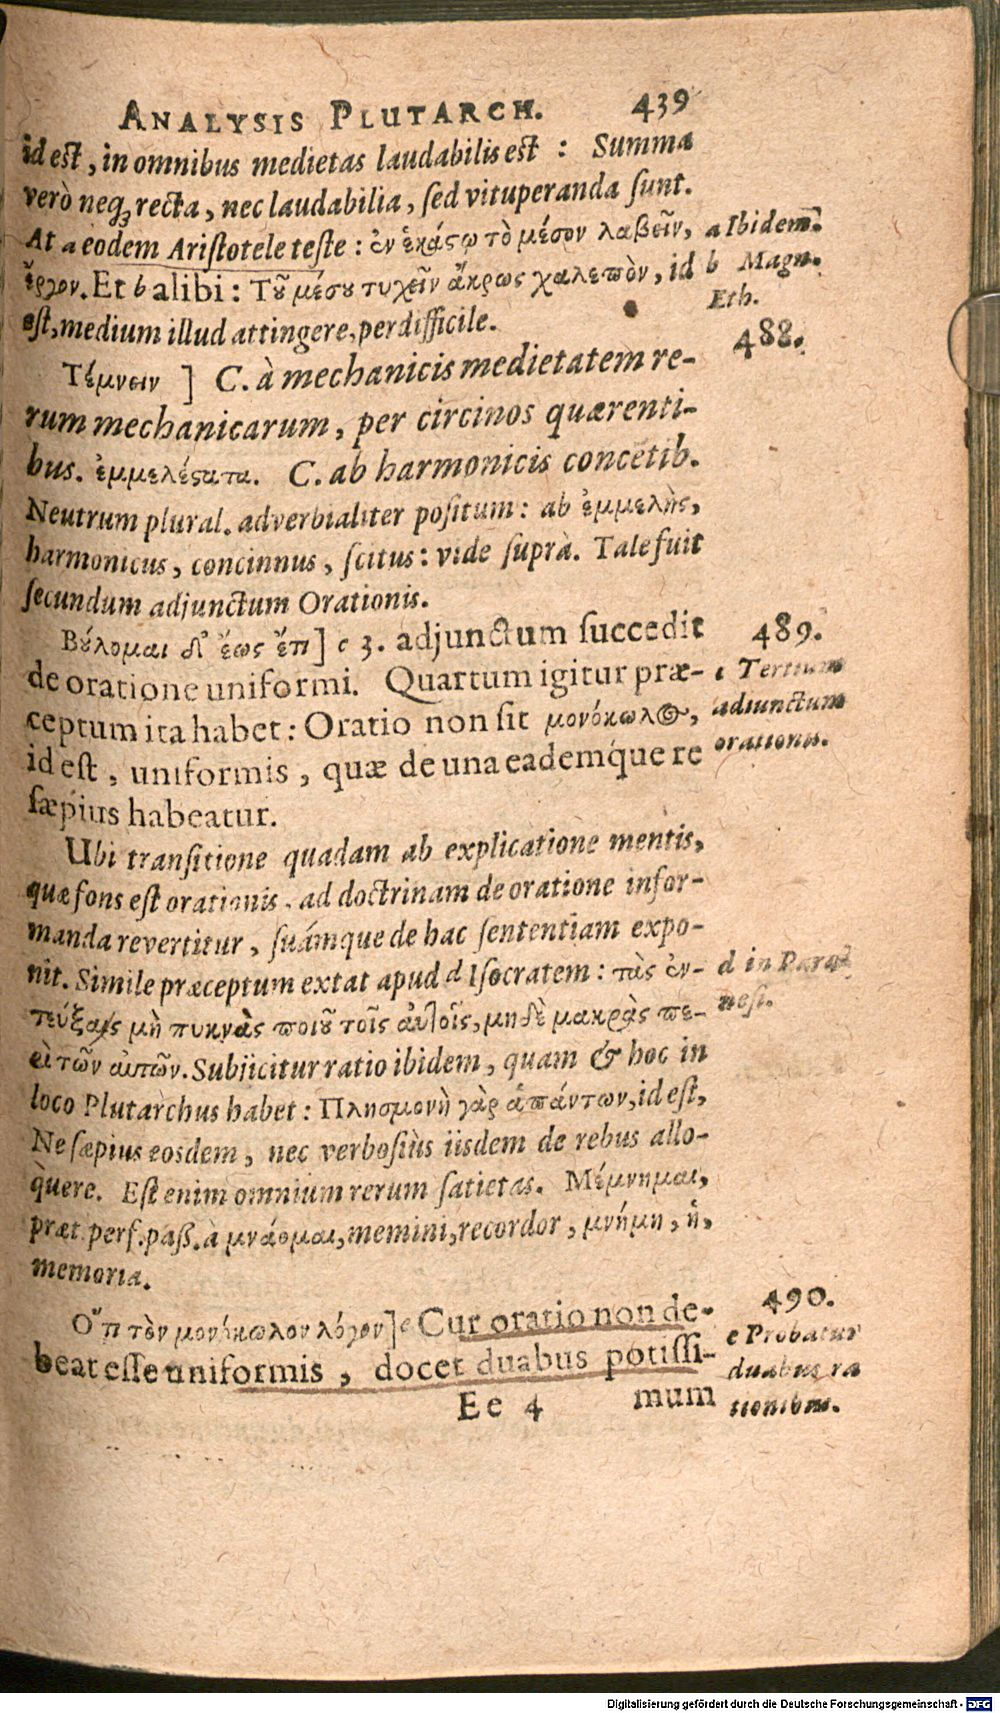 ANALYSIS PLUTARCH. 439
id est, in omnibus medietas laudabilis est : Summa
verò neq; recta, nec laudabilia, sed vituperanda sunt.
At a eodem Aristotele teste : ἐν ἑκάςῳ τὸ μέσον λαβεῖν, a Ibidem.
ἔργον. Et b alibi : Τοῦ μέσου τυχεῖν ἄκρως χαλεπὸν, id b Magn.
est, medium illud attingere, perdifficile. Eth.
488.
Τέμνειν ] C. à mechanicis medietatem re-
rum mechanicarum, per circinos quærenti-
bus. ἐμμελέςατα. C. ab harmonicis concētib.
Neutrum plural. adverbialiter positum : ab ἐμμελὴς,
harmonicus, concinnus, scitus : vide suprà. Tale fuit
secundum adjunctum Orationis.
Βούλομαι δ' ἔως ἔτι] c 3. adjunctum succedit 489.
de oratione uniformi. Quartum igitur præ- c Tertium
ceptum ita habet : Oratio non sit μονόκωλος, adiunctum
id est, uniformis, quæ de una eademq́ue re orationis.
sæpius habeatur.
Ubi transitione quadam ab explicatione mentis,
quæ fons est orationis, ad doctrinam de oratione infor-
manda revertitur, suámque de hac sententiam expo-
nit. Simile præceptum extat apud d Isocratem : τὰς ἐν- d in Paræ
τεύξεις μὴ πυκνὰς ποιοῦ τοῖς αὐτοῖς, μηδὲ μακρὰς πε- nesi.
ρὶ τῶν αὐτῶν. Subjicitur ratio ibidem, quam & hoc in
loco Plutarchus habet : Πλησμονὴ γὰρ ἁπάντων, id est,
Ne sæpius eosdem, nec verbosiùs iisdem de rebus allo-
quere. Est enim omnium rerum satietas. Μέμνημαι,
præt. perf. pass. à μνάομαι, memini, recordor, μνήμη, ἡ,
memoria.
490.
Ὅτι τὸν μονόκωλον λόγον] e Cur oratio non de- e Probatur
beat esse uniformis, docet duabus potissi- duabus ra
Ee 4 mum tionibus.
Digitalisierung gefördert durch die Deutsche Forschungsgemeinschaft - DFG